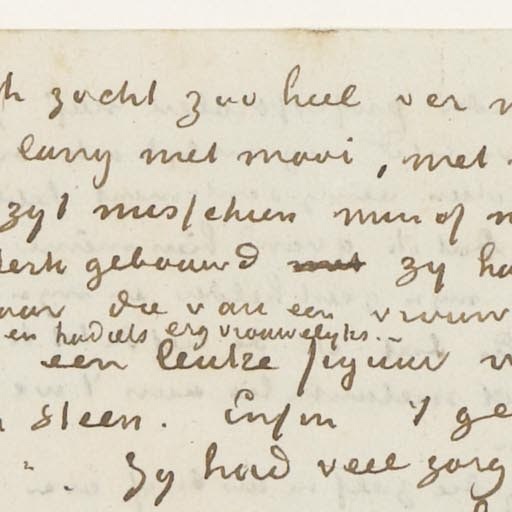 zocht zoo heel ver
lang niet mooi, niet
zyt misschien min of
sterk gebouwd met zy ha
die van een vrouw
en had iets erg vrouwelyks.
een leuke figuur
steen. Enfin 't ge
Zy had veel zorg